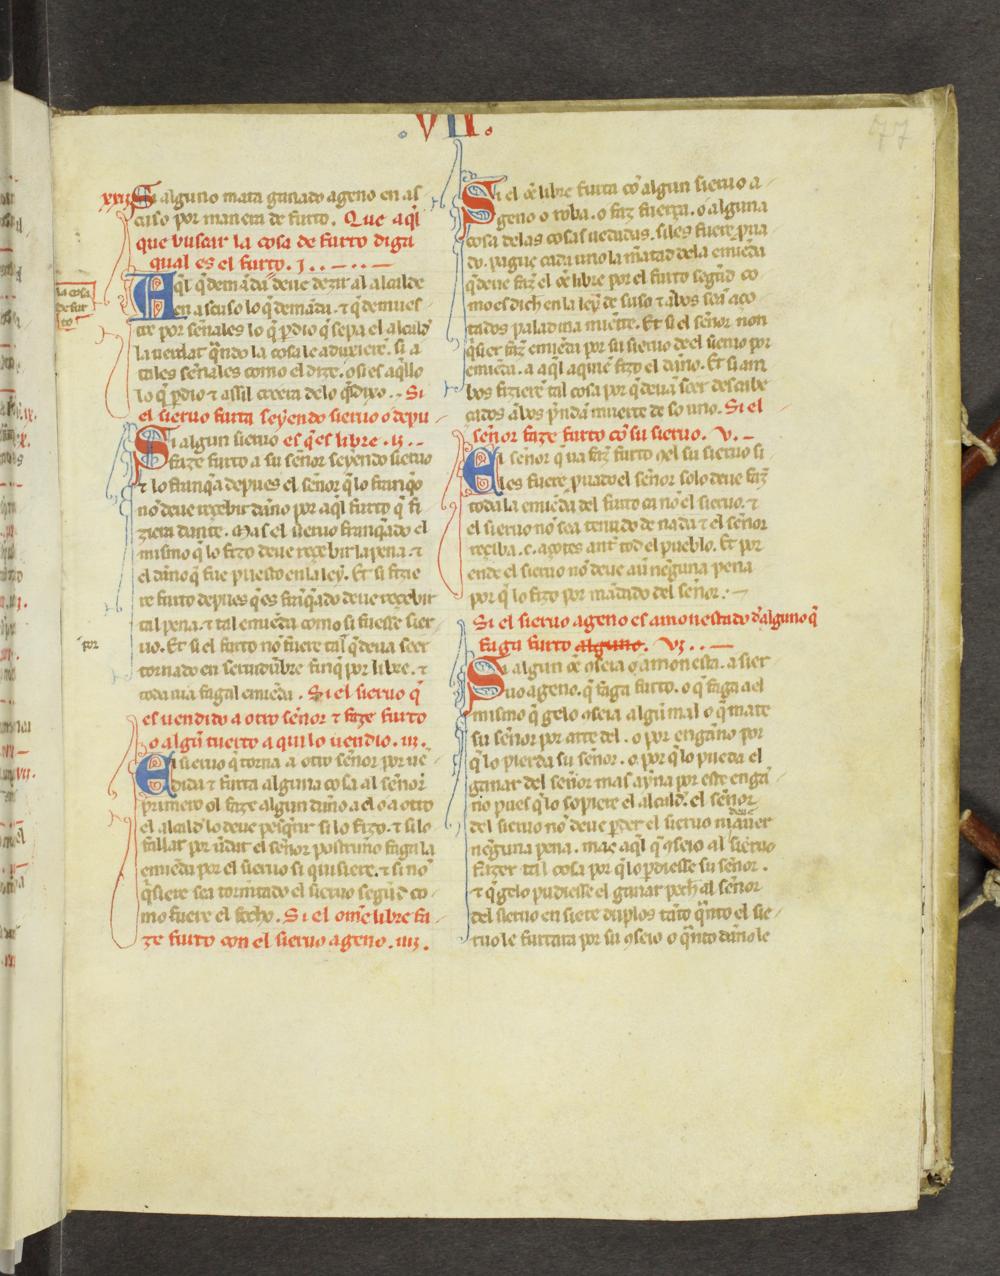 .VII.
77
xxij Si alguno mata ganado ageno en as
cuso por manera de furto. Que aq̃l
que buscar la cosa de furto diga
qual es el furto. j.
Aq̃l q̃ demãda deue dezir al alcalde
en ascuso lo q̃ demãda. ⁊ q̃ demues
tre por señales lo q̃ ꝑdio q̃ sepa el alcald̃
la uerdat q̃ndo la cosa le aduxierẽ. si a
tales señales como el dize. o si es aq̃llo
lo q̃ ꝑdio ⁊ assil creera delo q̃ dixo. Si
el sieruo furta seyendo sieruo o depu
Si algun sieruo es q̃ es libre. ij.
faze furto a su señor seyendo sieruo
⁊ lo franq̃a depues el señor q̃ lo franq̃o
nõ deue reçebir daño por aq̃l furto q̃ fi
ziera dante. Mas el sieruo franq̃ado el
mismo q̃ lo fizo deue reçebir la pena. ⁊
el daño q̃ fue puesto en la ley. Et si fizie
re furto depues q̃ es frãq̃ado deue reçebir
tal pena. ⁊ tal emiẽda como si fuesse sier
uo. Et si el furto nõ fuere tal q̃ deua seer
tornado en seruidũbre finq̃ por libre. ⁊
toda uia faga l emiẽda. Si el sieruo q̃
es uendido a otro señor ⁊ faze furto
o algũ tuerto a qui lo uendio. iij.
El sieruo q̃ torna a otro señor por uẽ
dida ⁊ furta alguna cosa al señor
primero ol faze algun daño a el o a otro
el alcald̃ lo deue pesq̃rir si lo fizo. ⁊ si lo
fallar por udat el señor postrimo faga la
emiẽda por el sieruo si quisiere. ⁊ si nõ
q̃siere sea tormẽtado el sieruo segũd co
mo fuere el fecho. Si el ome libre fa
ze furto con el sieruo ageno. iiij.
la cosa
de fur
to
por
Si el oẽ libre furta cõ algun sieruo a
geno o roba. o faz fuerça. o alguna
cosa delas cosas uedadas. si les fuere ꝓua
do. pague cada uno la mẽatad dela emiẽda
q̃ deue faz̃ el oẽ libre por el furto segũd co
mo es dich̃ en la ley de suso ⁊ ãbos seã aço
tados paladina miẽtre. Et si el señor non
q̃sier faz̃ emiẽda por su sieruo dee el sieruo por
emiẽda. a aq̃l a quiẽ fizo el daño. Et si am
bos fizierẽ tal cosa por q̃ deuã seer descabe
çados ãbos p̃ndã muerte de so uno. Si el
señor faze furto cõ su sieruo. v.
El señor q ua faz̃ furto ꝯel su sieruo si
les fuere ꝓuado el señor solo deue faz̃
toda la emiẽda del furto ca nõ el sieruo. ⁊
el sieruo nõ sea tenudo de nada ⁊ el señor
reçiba .c. açotes ant̃ tod el pueblo. Et por
ende el sieruo nõ deue auer neguna pena
por q̃ lo fizo por mãdado del señor.
Si el sieruo ageno es amonestado d̃ alguno q̃
faga furto alguno. vj.
Si algun oẽ ꝯseia o amonesta. a sier
uo ageno. q̃ faga furto. o q̃ faga a el
mismo q̃ gelo ꝯseia algũ mal o q̃ mate
su señor por arte del. o por engaño por
q̃ lo pierda su señor. o por q̃ lo pueda el
ganar del señor mas ayna por este enga
ño pues q̃ lo sopiere el alcald̃. el señor
del sieruo nõ deue ꝑder el sieruo ni deue auer
neguna pena. mas aq̃l q̃ ꝯseio al sieruo
fazer tal cosa por q̃ lo ꝑdiesse su señor.
⁊ q̃ gelo pudiesse el ganar pech̃ al señor
del sieruo en siete duplos tãto q̃nto el sie
ruo le furtara por su ꝯseio o q̃nto daño le